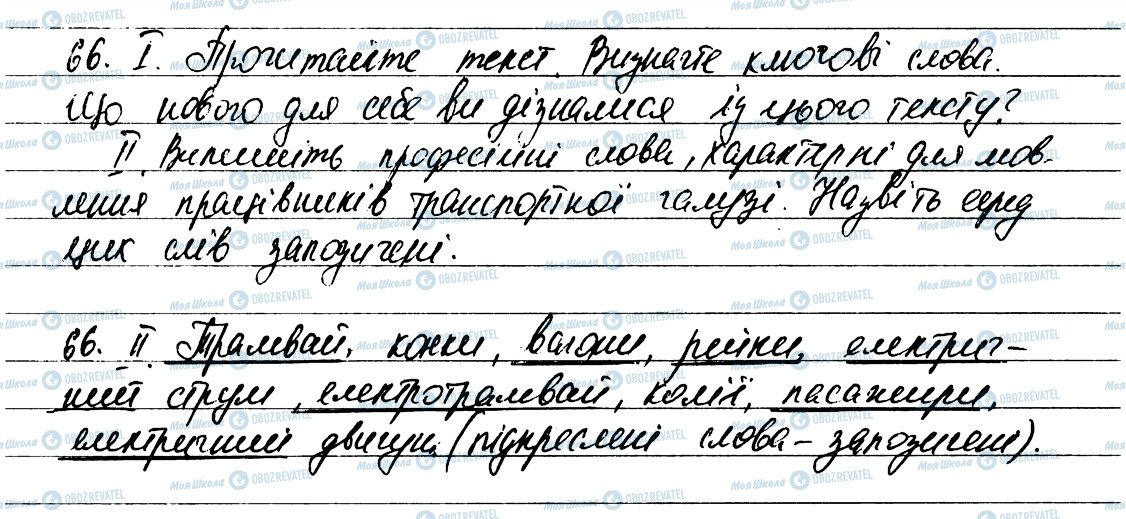 66. I. Прочитайте текст. Визначте ключові слова.
Що нового для себе ви дізналися із цього тексту?
II. Випишіть професійні слова, характерні для мов-
лення працівників транспортної галузі. Назвіть серед
цих слів запозичені.
66. II. Трамвай, конки, вагони, рейки, електрич-
ний струм, електротрамвай, колії, пасажири,
електричний двигун. (підкреслені слова – запозичені).